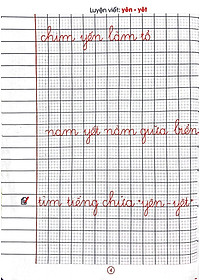 Luyện viết: yên - yêt
chim yến làm tổ
nam yết nằm giữa biển
tìm tiếng chứa "yên - yêt"
4